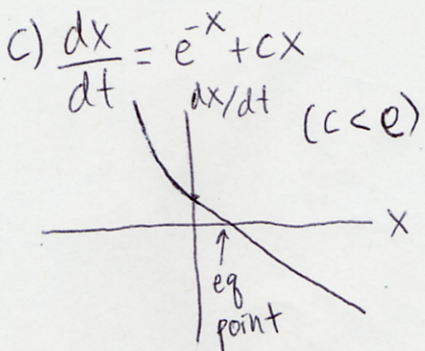 c) dx/dt = e^-x + cx
dx/dt
(c < e)
x
eq
point